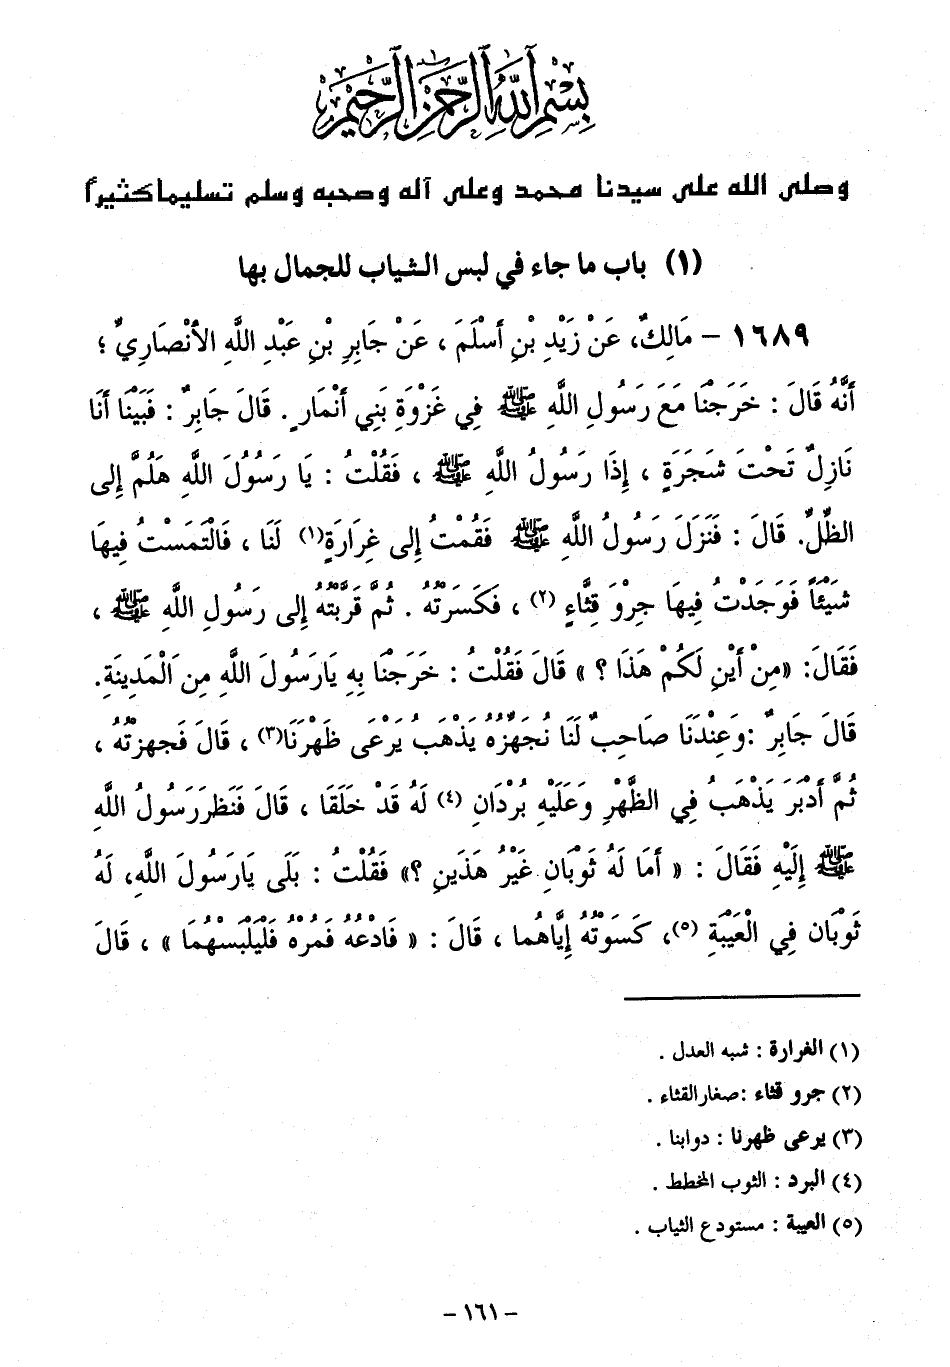 بِسْمِ ٱللَّهِ ٱلرَّحْمَٰنِ ٱلرَّحِيمِ
وصلى الله على سيدنا محمد وعلى آله وصحبه وسلم تسليما كثيراً
(١) باب ما جاء في لبس الثياب للجمال بها
١٦٨٩ – مَالِكٌ، عَنْ زَيْدِ بْنِ أَسْلَمَ ، عَنْ جَابِرِ بْنِ عَبْدِ اللَّهِ الأَنْصَارِيِّ ؛
أَنَّهُ قَالَ : خَرَجْنَا مَعَ رَسُولِ اللَّهِ ﷺ فِي غَزْوَةِ بَنِي أَنْمَارٍ . قَالَ جَابِرٌ : فَبَيْنَا أَنَا
نَازِلٌ تَحْتَ شَجَرَةٍ ، إِذَا رَسُولُ اللَّهِ ﷺ ، فَقُلْتُ : يَا رَسُولَ اللَّهِ هَلُمَّ إِلى
الظِّلِّ. قَالَ : فَنَزَلَ رَسُولُ اللَّهِ ﷺ فَقُمْتُ إِلى غِرَارَةٍ(١) لَنَا ، فَالْتَمَسْتُ فِيهَا
شَيْئاً فَوَجَدْتُ فِيهَا جِرْوَ قِثَّاءٍ (٢) ، فَكَسَرْتُهُ . ثُمَّ قَرَّبْتُهُ إِلى رَسُولِ اللَّهِ ﷺ ،
فَقَالَ: «مِنْ أَيْنِ لَكُمْ هَذَا ؟ » قَالَ فَقُلْتُ : خَرَجْنَا بِهِ يَارَسُولَ اللَّهِ مِنَ الْمَدِينَةِ.
قَالَ جَابِرٌ :وَعِنْدَنَا صَاحِبٌ لَنَا نُجَهِّزُهُ يَذْهَبُ يَرْعَى ظَهْرَنَا(٣) ، قَالَ فَجهزْتُهُ ،
ثُمَّ أَدْبَرَ يَذْهَبُ فِي الظَّهْرِ وَعَلَيْهِ بُرْدَانِ (٤) لَهُ قَدْ خَلَقَا ، قَالَ فَنَظَرَرَسُولُ اللَّهِ
ﷺ إِلَيْهِ فَقَالَ : « أَمَا لَهُ ثَوْبَانِ غَيْرُ هَذَينِ ؟» فَقُلْتُ : بَلَى يَارَسُولَ اللَّهِ، لَهُ
ثَوْبَان فِي الْعَيْبَةِ (٥)، كَسَوْتُهُ إِيَّاهُما ، قَالَ : « فَادْعُهُ فَمُرْهُ فَلْيَلْبَسْهُمَا » ، قَالَ
(١) الغرارة : شبه العدل .
(٢) جرو قثاء :صغارالقثاء .
(٣) يرعى ظهرنا : دوابنا .
(٤) البرد : الثوب المخطط .
(٥) العيبة : مستودع الثياب .
– ١٦١ –